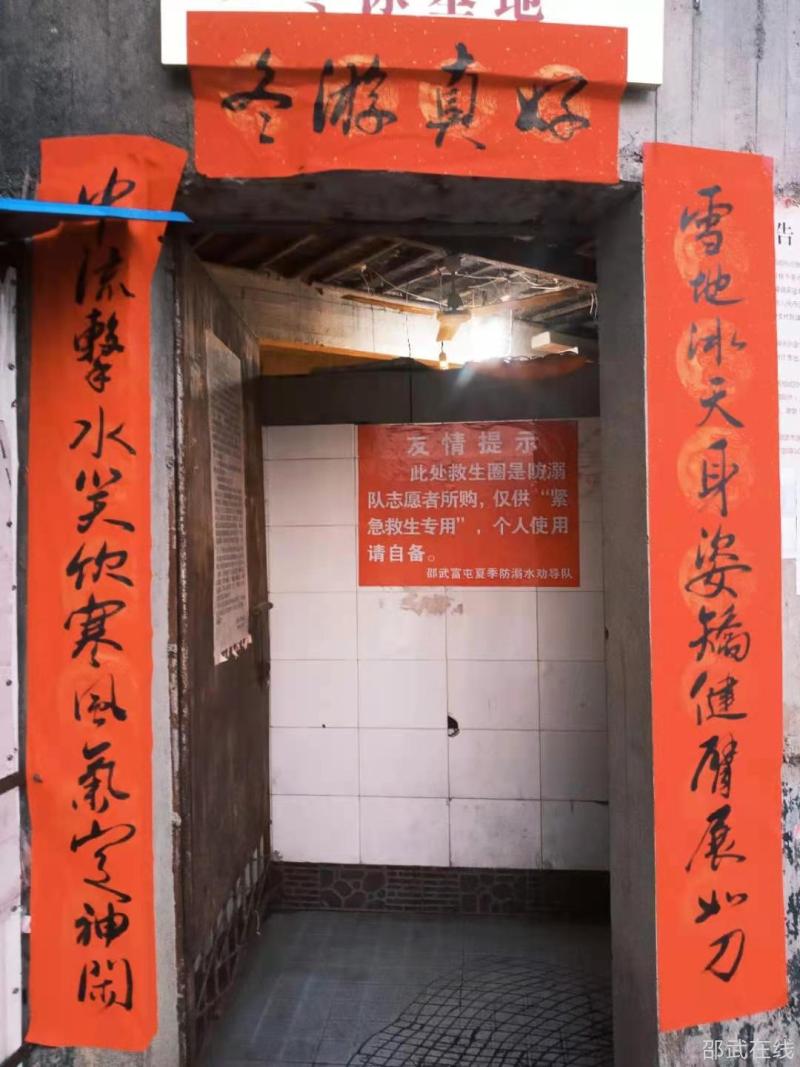 基地
冬游真好
雪地冰天身姿矯健臂展如刀
中流擊水笑饮寒風氣定神閑
友情提示
此处救生圈是防溺
队志愿者所购，仅供“紧
急救生专用”，个人使用
请自备。
邵武富屯夏季防溺水劝导队
告
邵武在线